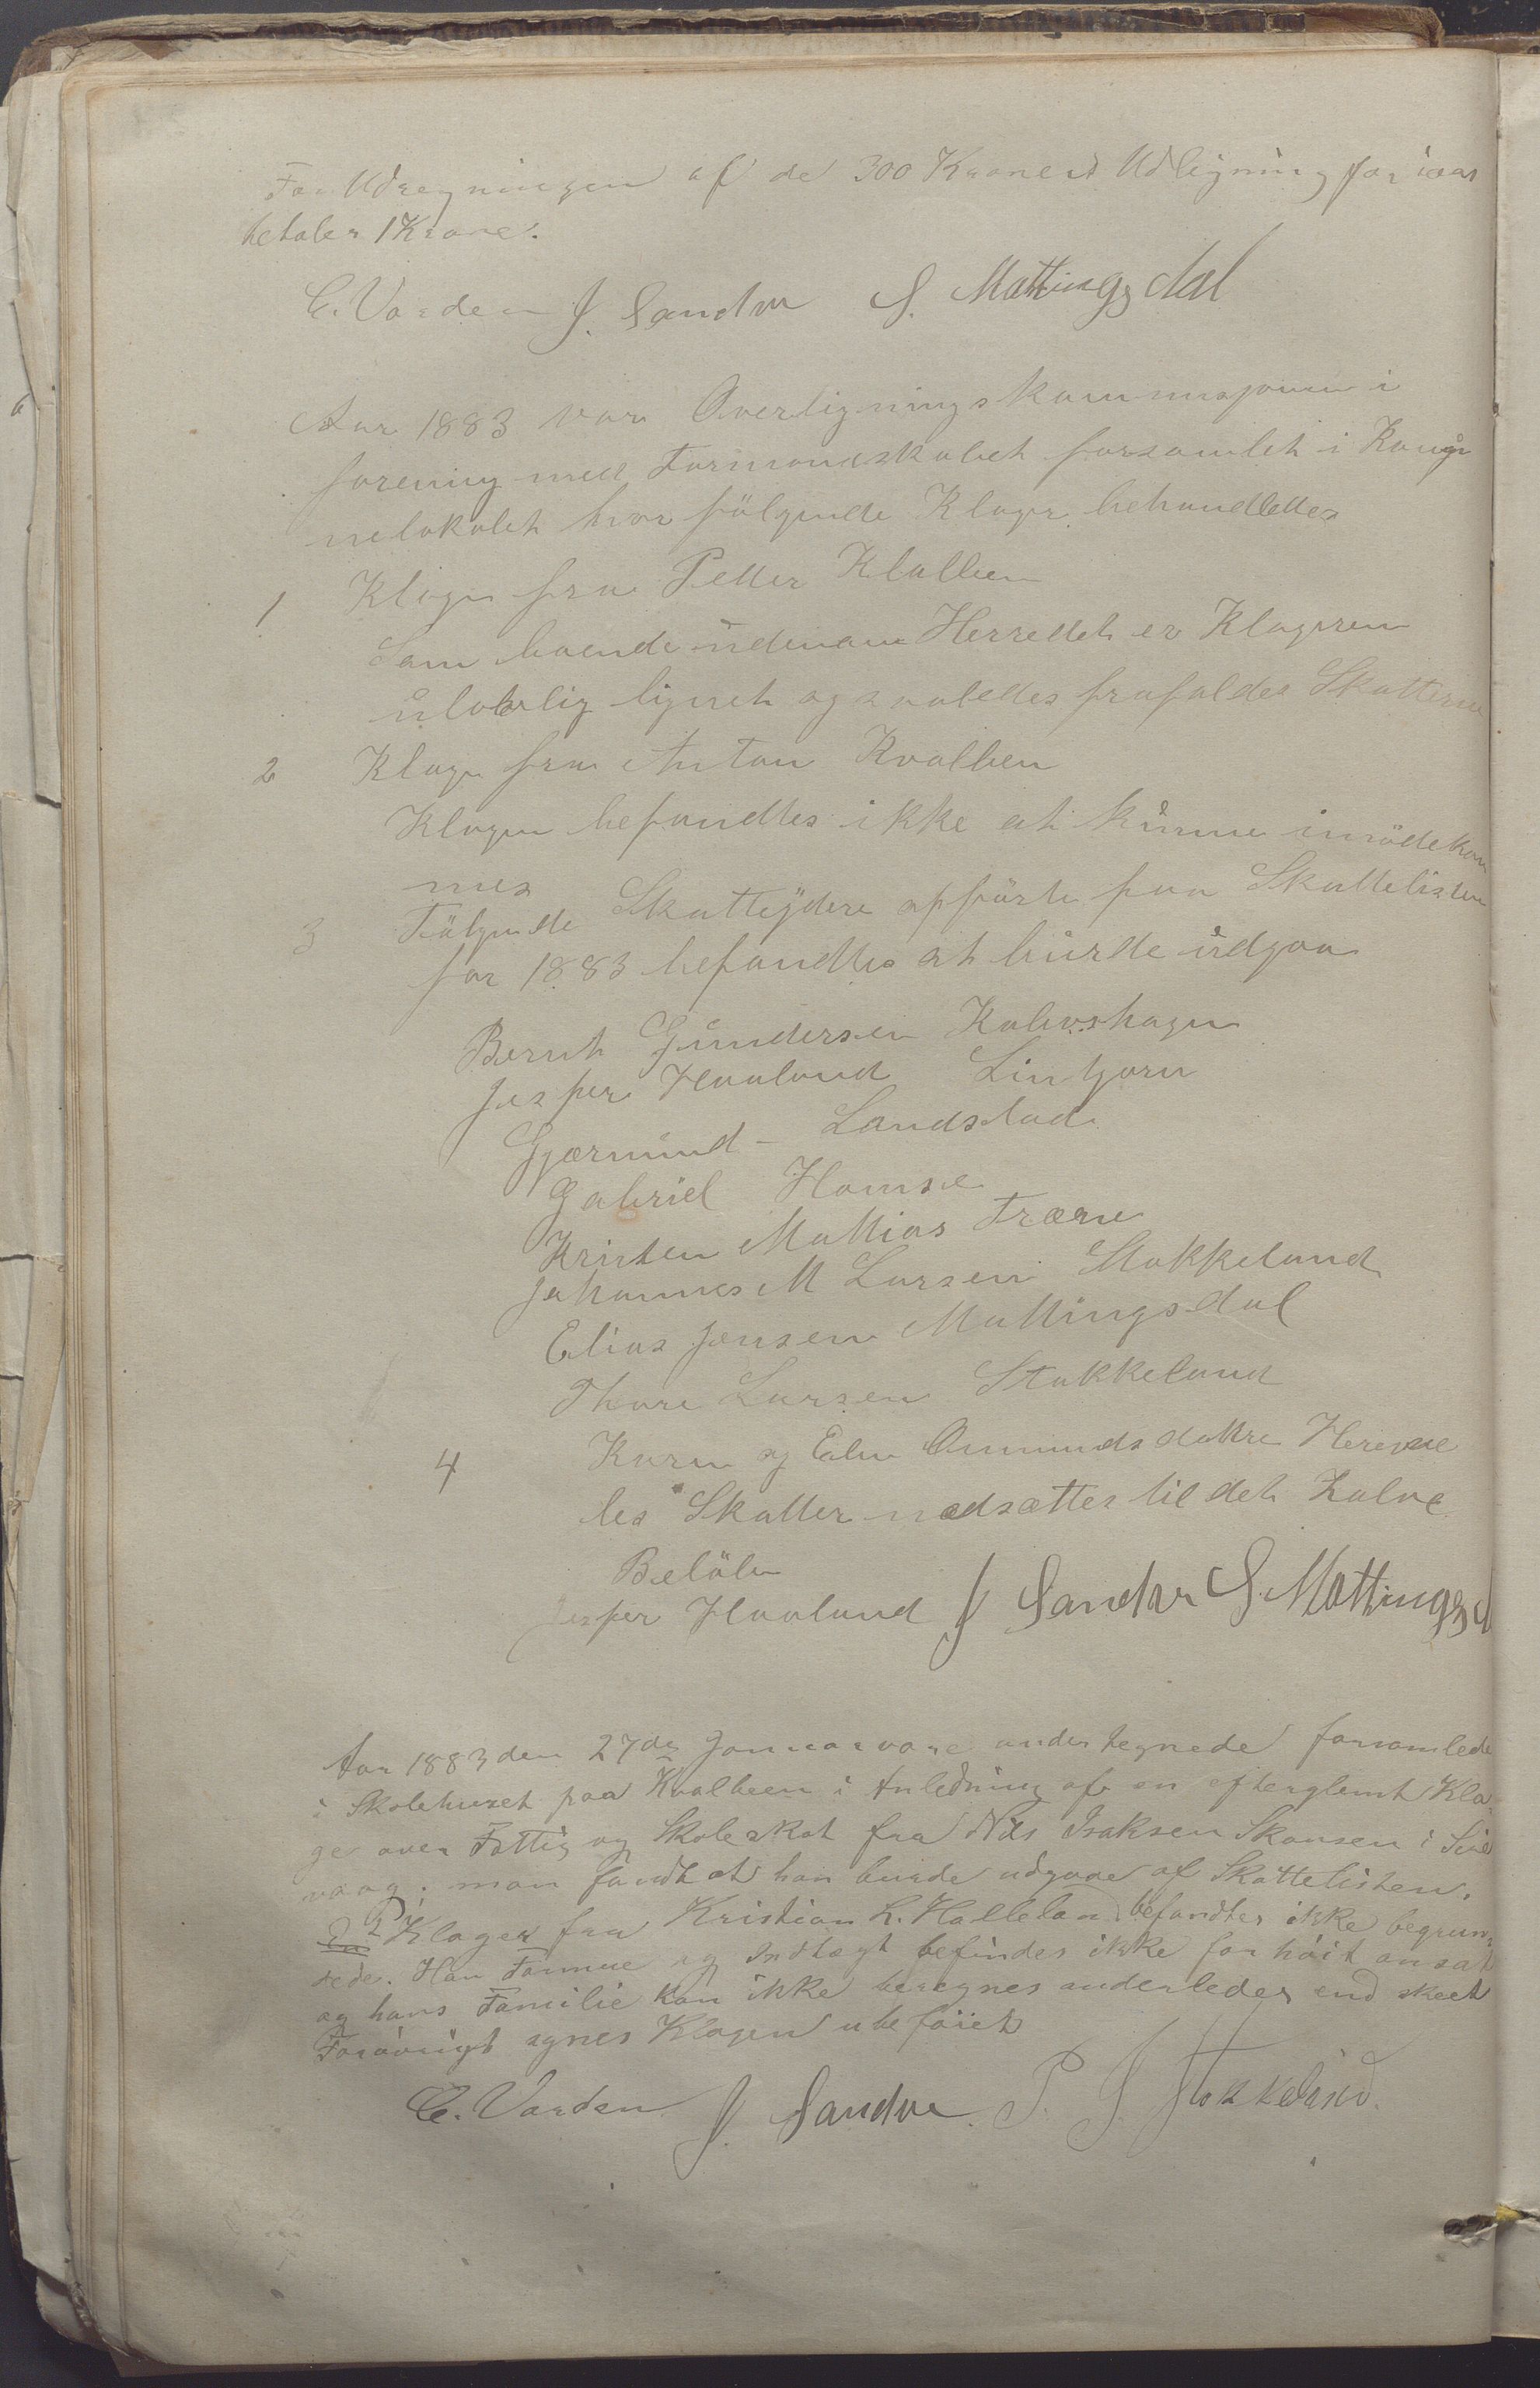 For Udregningen af de 300 Kroners Udligning for iaar
betaler 1 Krone.
C. Varden J. Sandve S. Mattingsdal
Aar 1883 var Overligningskommisjonen i
forening med Formandskabet forsamlet i Kom͞u
nelokalet hvor fölgende Klager behandledes
1 Klage fra Petter Klalleen
Som boende udenom Herredet er Klageren
ulovlig lignet og saaledes frafaldes Skatterne
2 Klage fra Anton Kvalben
Klagen befandtes ikke at kunne imödekom
mes
3 Fölgende Skatteydere opförte paa Skattelisten
for 1883 befandtes at burde udgaa
Bernt Gundersen Kalvshagen
Jesper Haaland Lintjørn
Gjærmund - Landstad
Gabriel Homse
Kristen Mattias Træne
Johannes M Larsen Stokkeland
Elias Jensen Mattingsdal
Thore Larsen Stokkeland
4 Karen og Ommundsdottre Herivel
les Skatter nedsættes til det halve
Belöb
Jesper Haaland J Sandve S. Mattingsd
Aar 1883 den 27de Januar vare undertegnede forsamlede
i Skolehuset paa Kvalbeen i Anledning af en efterglemt Kla-
ge over Fattig og Skoleskat fra Nils Isaksen Skansen i Sire
vaag; man fandt at han burde udgaae af Skattelisten.
Klager fra Kristian L. Helleland befandtes ikke begrun-
dede. Han Formue og Indtægt befindes ikke for höit ansat
og hans Familie kan ikke beregnes anderledes end skeet
Forövrigt agnes Klagen ubeföiet
C. Varden J. Sandve. P. J. Stokkeland.